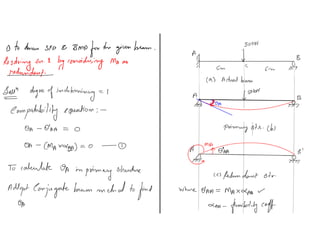 ① to draw SFD & BMD for the given beam.
Resolving ex. 1 by considering MA as
redundant.
Solnⁿ degree of indeterminancy = 1
Compatibility equation :-
θA - θAA = 0
θA - (MA × αAA) = 0 — ①
To calculate θA in primary structure
Adopt Conjugate beam method to find
θA
50kN
A
C
B
6m
6m
(a) Actual beam
A
50kN
θA
B
primary str. (b)
A
MA
θAA
B
(c) Redundant str
where θAA = MA × αAA ✓
αAA – flexibility coeff.